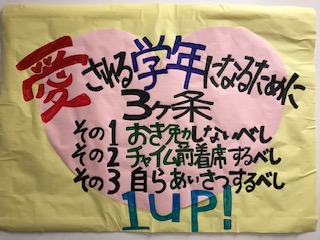 愛される学年になるために
3ヶ条
その1 おき勉しないべし
その2 チャイム前着席するべし
その3 自らあいさつするべし
1UP!